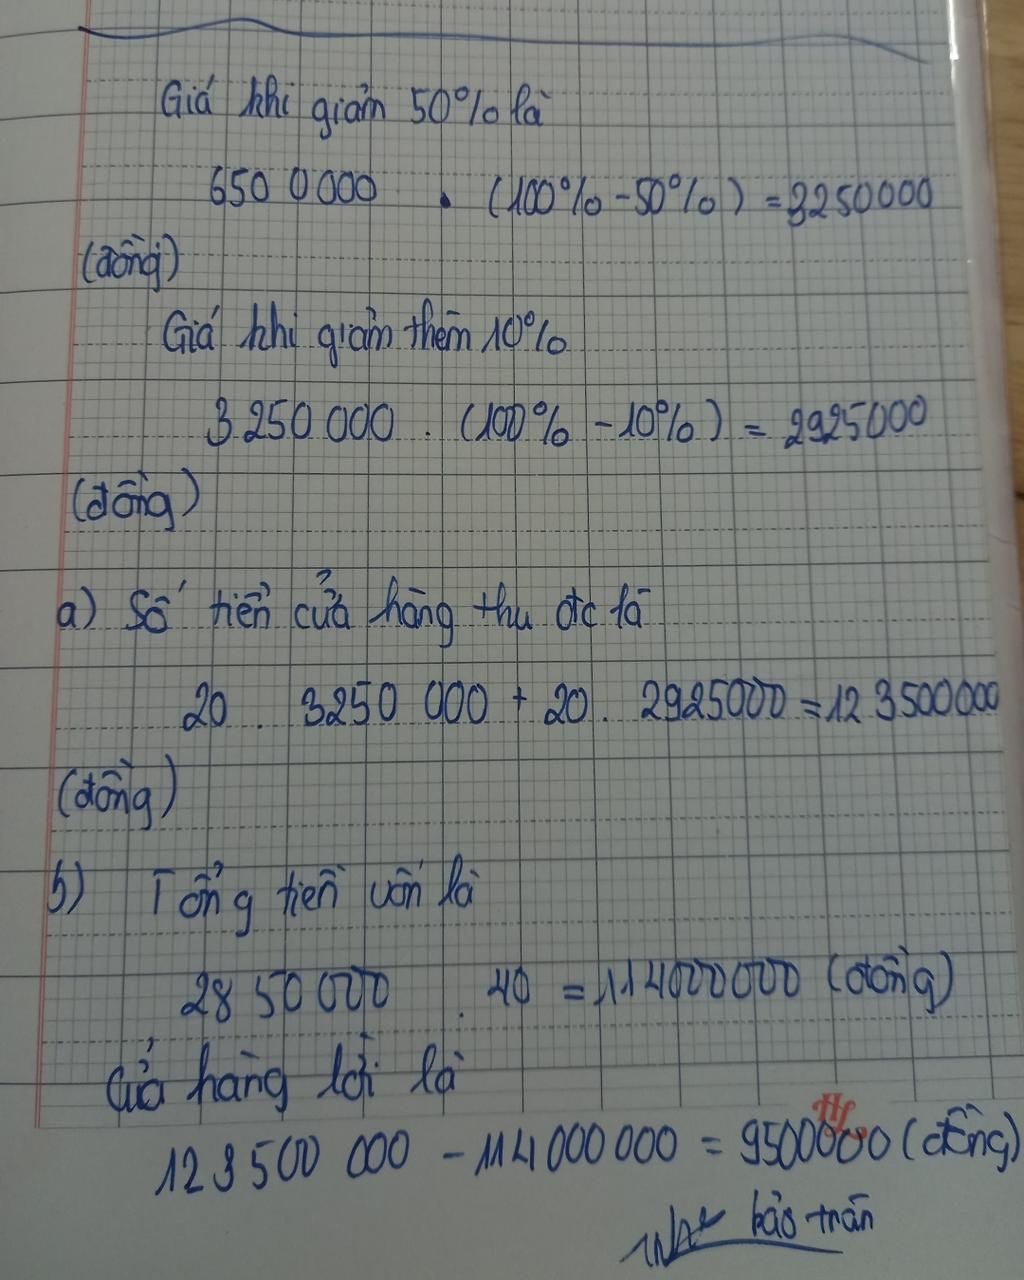 Giá khi giảm 50% là
6500000 . (100% - 50%) = 3250000
(đồng)
Giá khi giảm thêm 10%
3250000 . (100% - 10%) = 2925000
(đồng)
a) Số tiền cửa hàng thu đc là
20 . 3250 000 + 20 . 2925000 = 123500000
(đồng)
b) Tổng tiền vốn là
2850000 . 40 = 114000000 (đồng)
Cửa hàng lời là
123500 000 - 114000000 = 9500000 (đồng)
bảo trân